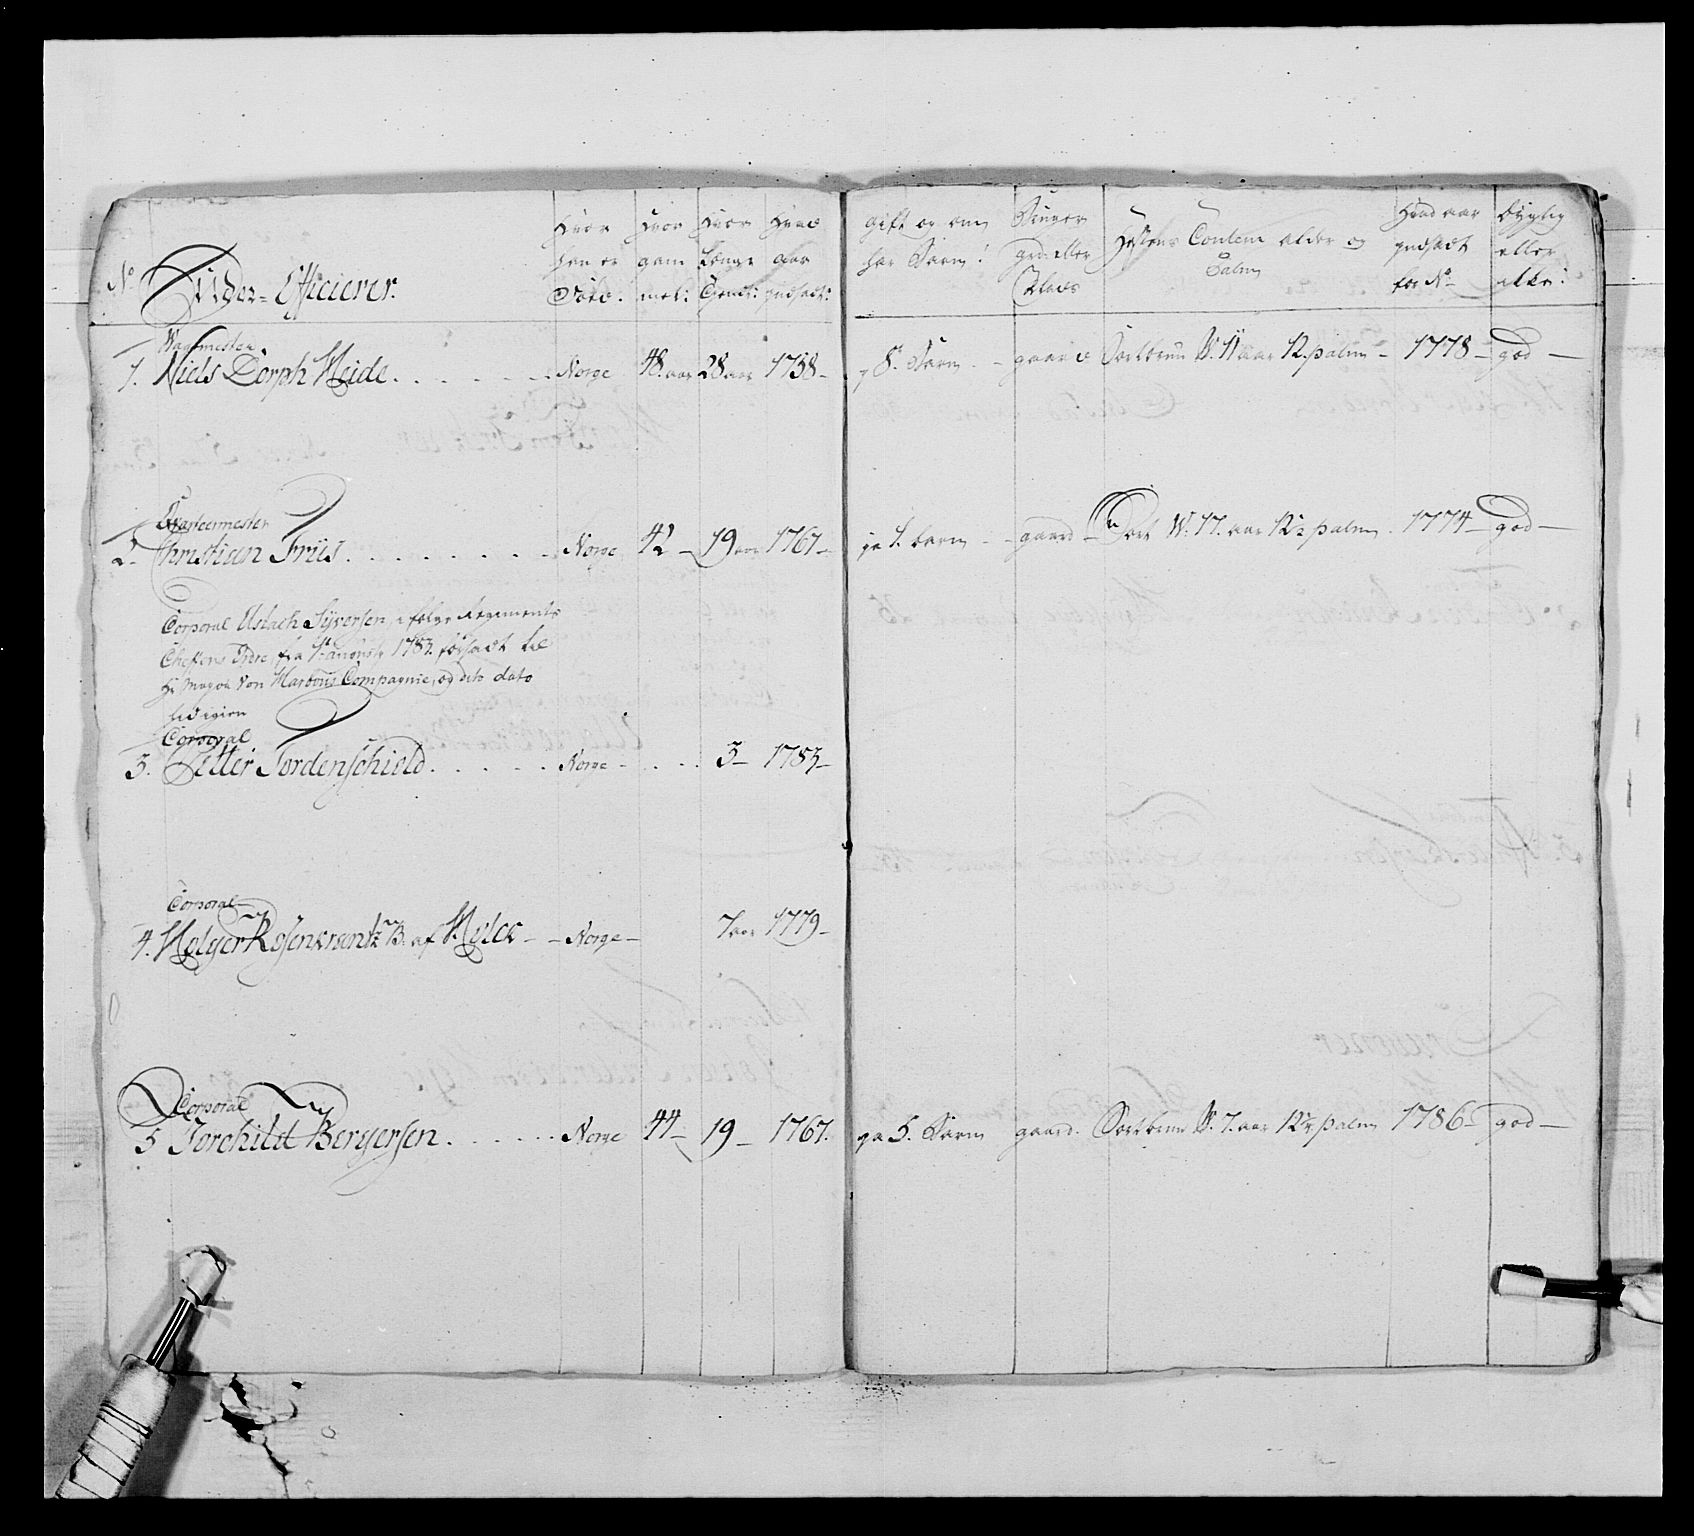 No
Under-Officierer.
Hvor
han er
Død:
Hvor
gam
mel:
Hvor
Længe
Tient:
Hvad
aar
indsadt:
gift og om
har Barn:
grd: eller
Plads
Hestens Couleur alder og
Palm
Hvad aar
indsadt
for No
Dygtig
eller
ikke:
Wagtmester
1. Niels Dorph Heide. Norge 48. aar 28 aar 1758 - 8. Barn - gaard Sortbrun W. 11 aar 12. palm - 1778 - god -
Qvarteermester
2. Christian Friis. Norge 42 - 19 aar 1767 - ja 1. barn - gaard - Sort W. 17. aar 12½ palm. 1774 - god -
Corporal Eslach Syversen, i følge Regiments
Cheffens Ordre fra 1te 1783. forsadt til
Hr Major von Marbous Compagnie, og dito dato
hid igien
Corporal
3. Petter Tordenschield. Norge - 3 - 1783 -
Corporal
4. Holger Rosenkrantz B. af Holck - Norge - 7 aar 1779 -
Corporal
5 Torchild Bergersen. Norge 44 - 19 - 1767. ja 5. Barn gaard. Sortbrun W. 7. aar 12½ palm 1786 - god -